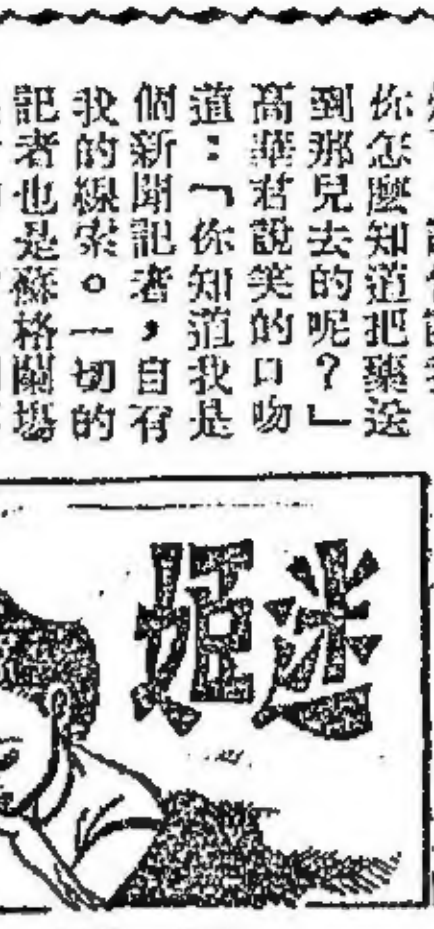 你怎麼知道把藥送
到那兒去的呢？」
高華君說笑的口吻
道：「你知道我是
個新聞記者，自有
我的線索。一切的
記者也是蘇格蘭場
迷姬